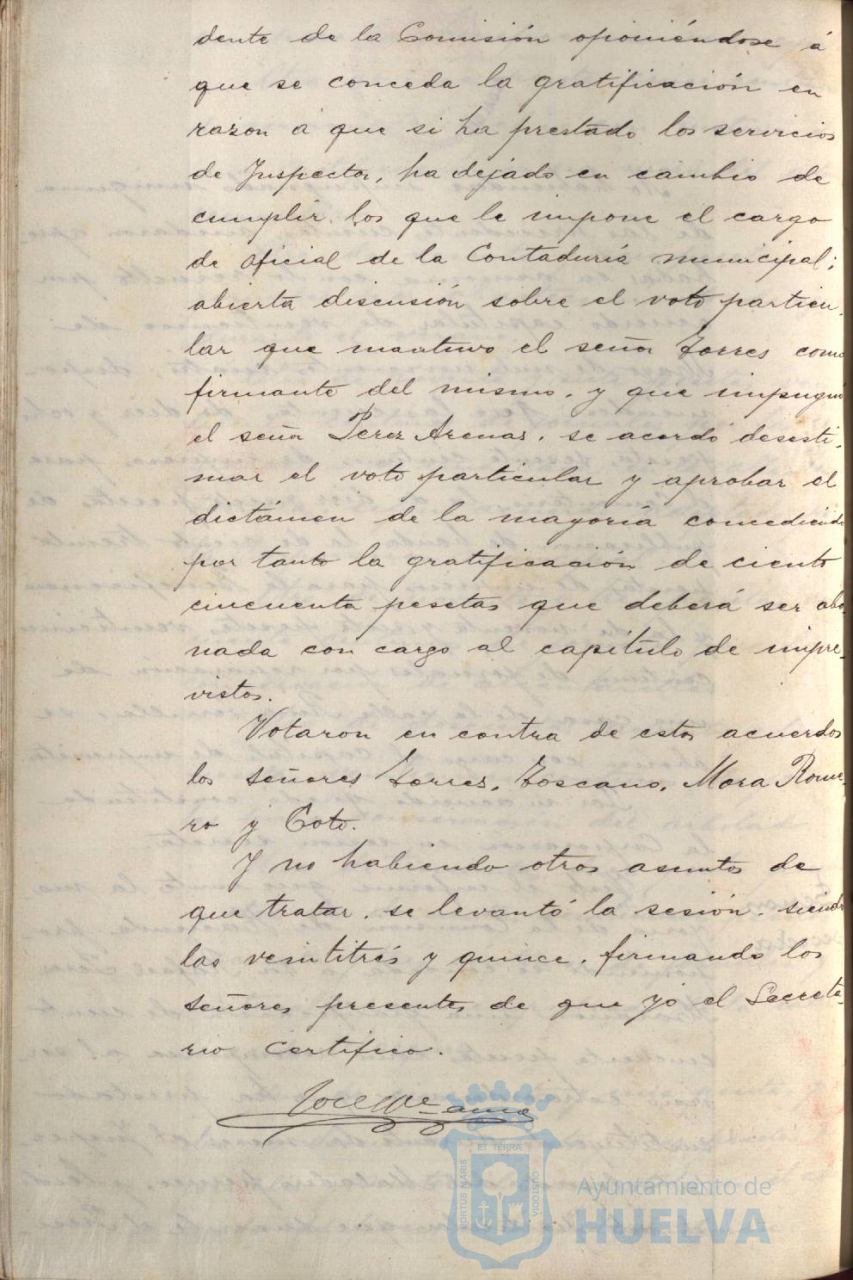 dente de la Comisión oponiéndose á
que se conceda la gratificación en
razon a que si ha prestado los servicios
de Inspector, ha dejado en cambio de
cumplir los que le impone el cargo
de oficial de la Contaduría municipal;
abierta discusión sobre el voto particu-
lar que mantuvo el señor Torres como
firmante del mismo, y que impugnó
el señor Perez Arenas, se acordó desesti-
mar el voto particular y aprobar el
dictámen de la mayoría concediendo
por tanto la gratificación de ciento
cincuenta pesetas que deberá ser abo-
nada con cargo al capítulo de impre-
vistos.
Votaron en contra de estos acuerdos
los señores Torres, Toscano, Mora Rome-
ro y Coto.
Y no habiendo otros asuntos de
que tratar, se levantó la sesión, siendo
las veintitrés y quince, firmando los
señores presentes de que yo el Secreta-
rio certifico.
ET TERRA
PORTUS MARIS
CUSTODIA
Ayuntamiento de
HUELVA